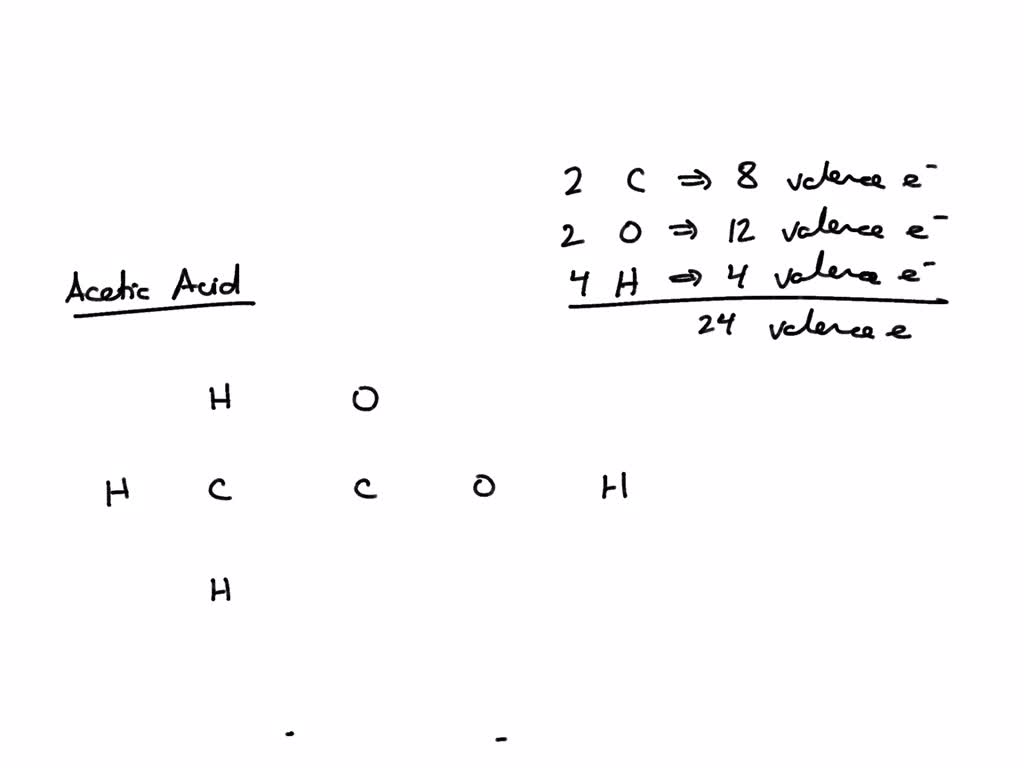 2 C ⇒ 8 valence e⁻
2 O ⇒ 12 valence e⁻
4 H ⇒ 4 valence e⁻
24 valence e
Acetic Acid
H O
H C C O H
H